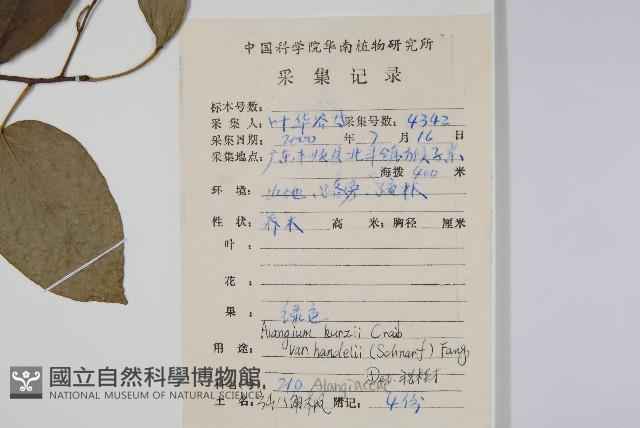 中国科学院华南植物研究所
采集记录
标本号数:
采集人: 叶华谷 采集号数: 4342
采集日期: 2000 年 7 月 16 日
采集地点: 广东丰顺县北斗镇
海拨 400 米
环境: 山地、路旁、疏林
性状: 乔木 高 米; 胸径 厘米
叶:
花:
果: 绿色
Alangium kurzii Craib
用途: var. handelii (Schnarf) Fang
Det.
科名(号): 210 Alangiaceae
土名: 附记: 4份
國立自然科學博物館
NATIONAL MUSEUM OF NATURAL SCIENCE